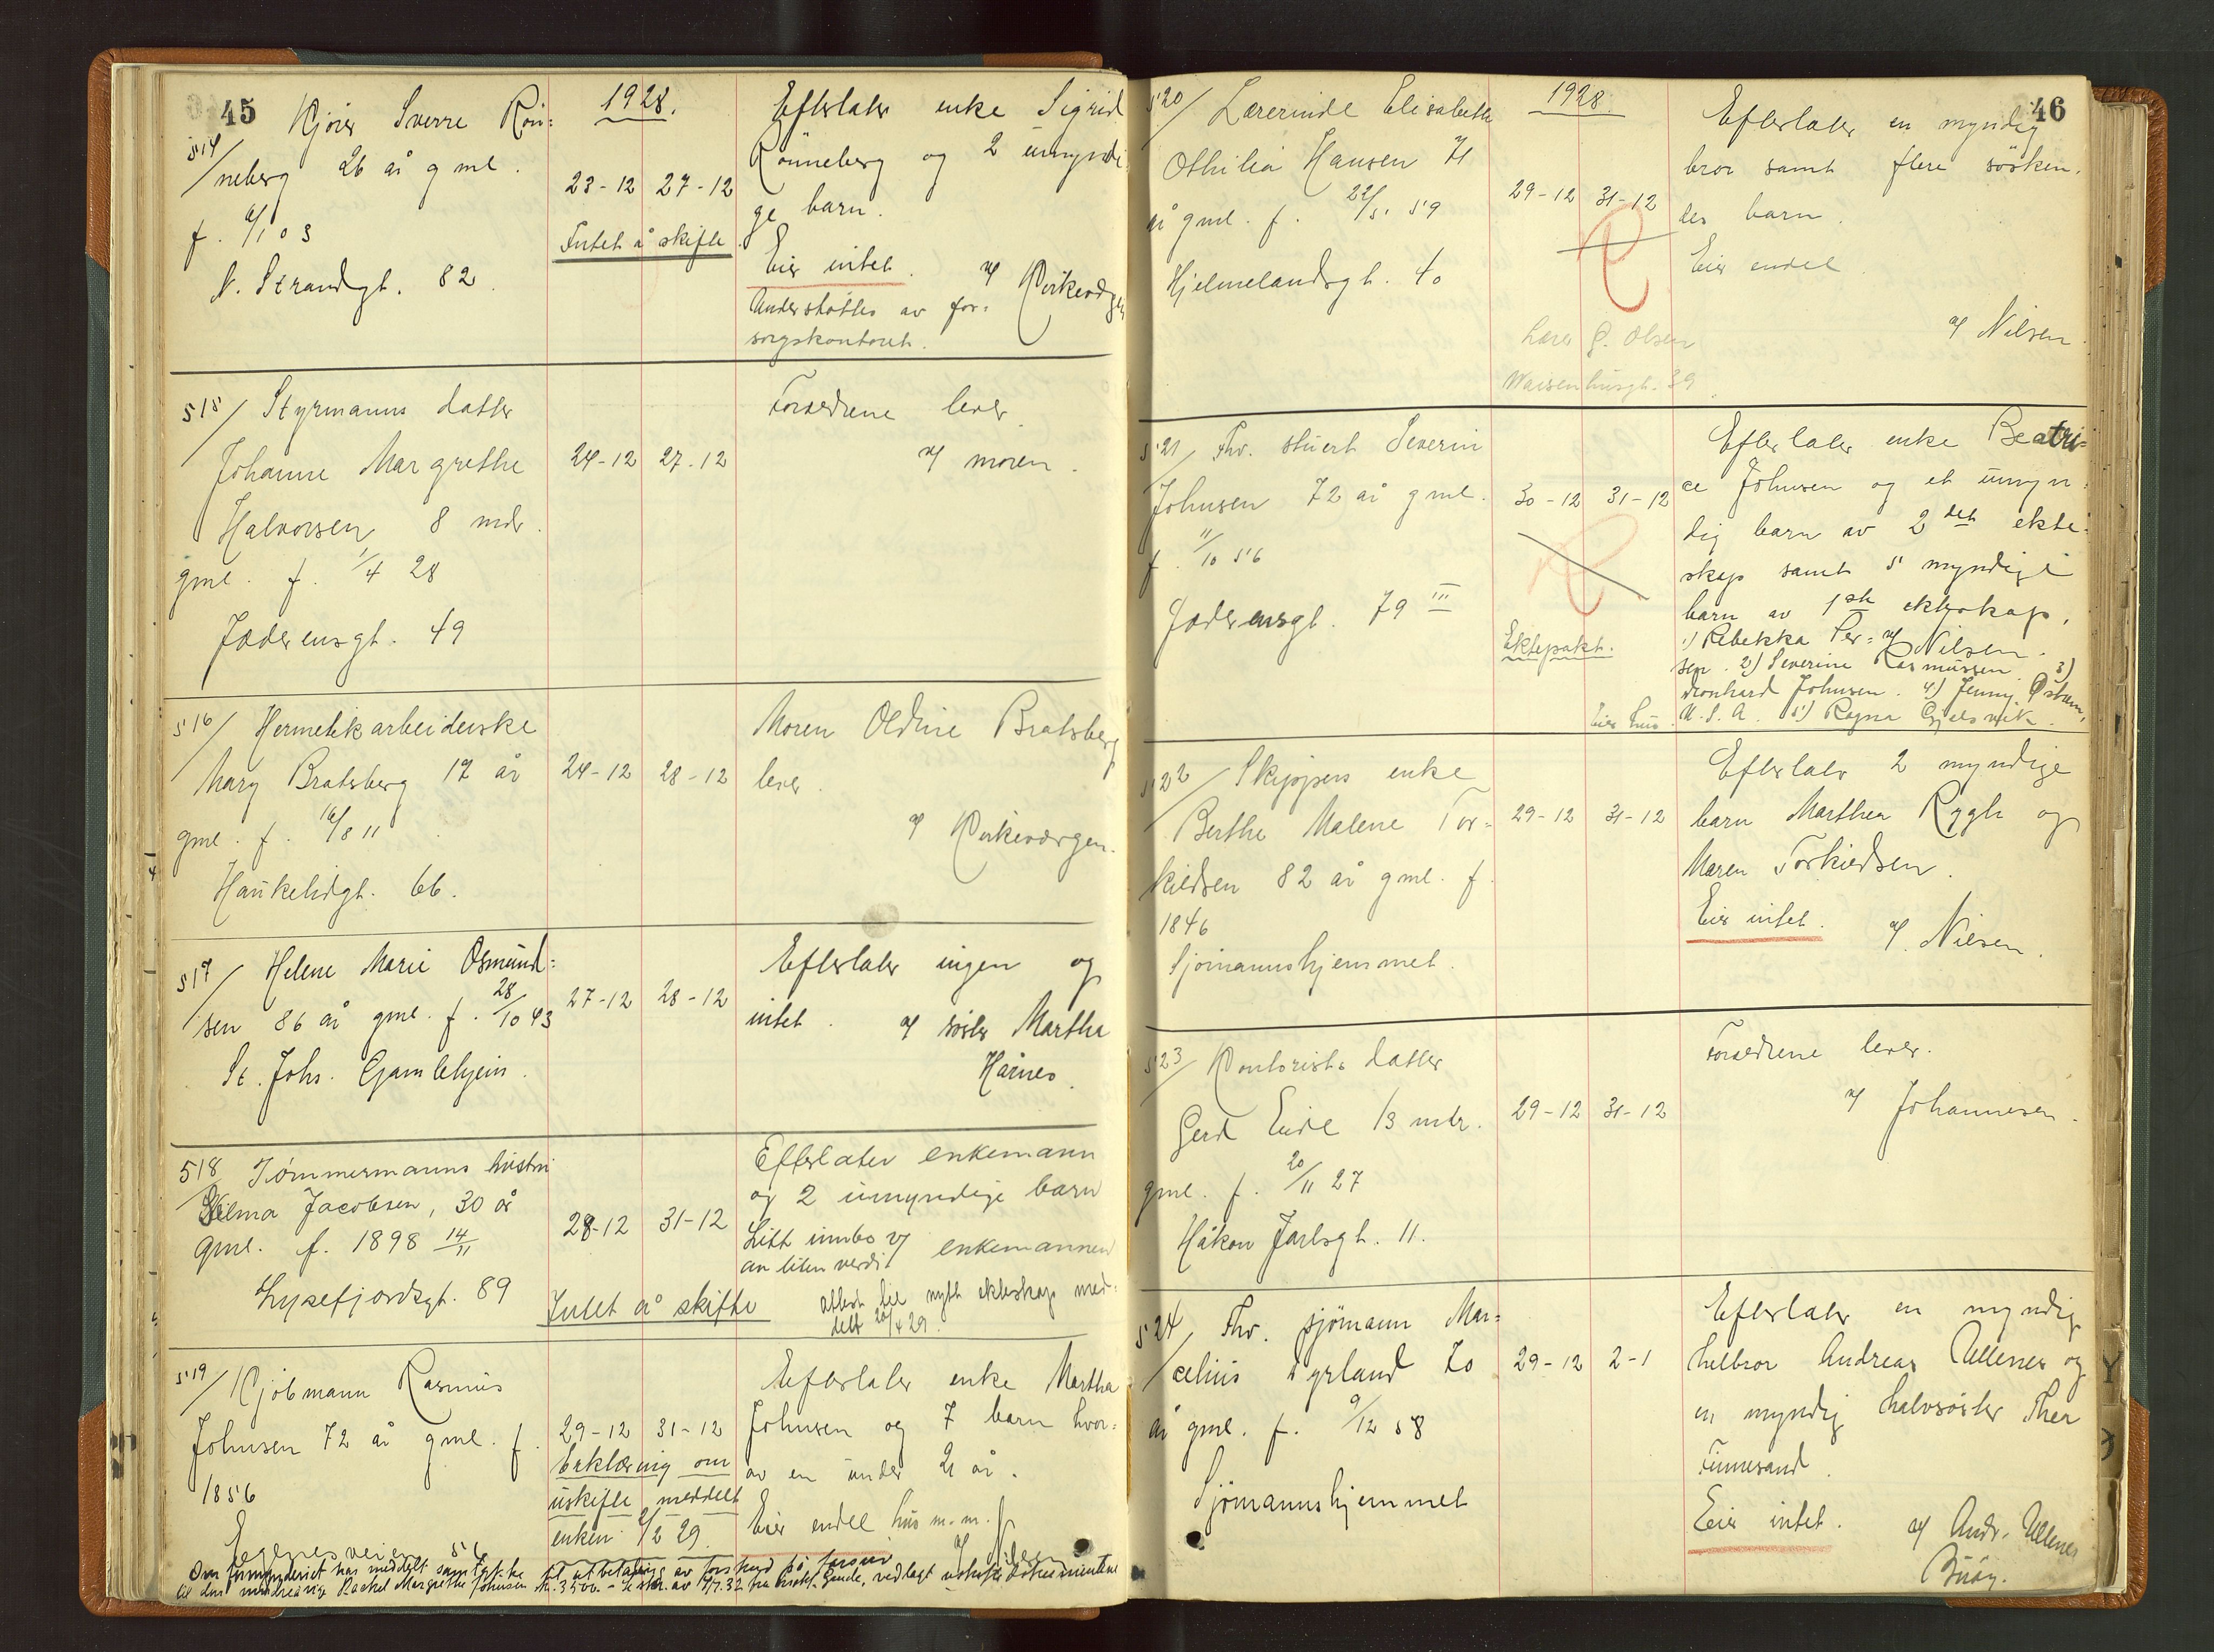 45
1928.
514/ Kjører Sverre Rön=
neberg 26 år gml.
f. 6/1 03
N. Strandgt. 82.
23-12 27-12
Intet å skifte
Efterlater enke Sigrid
Rönneberg og 2 umyndi
ge barn.
Eier intet.
Understöttes av for=
sorgskontoret.
v/ Kirkevergen
515/ Styrmanns datter
Johanne Margrethe
Halvorsen 8 mdr.
gml. f. 1/4 28
Jæderensgt. 49
24-12 27-12
Forældrene lever.
v/ moren.
516/ Hermetikarbeiderske
Mary Bratsberg 17 år
gml. f. 16/8 11
Haukelidgt. 66.
24-12 28-12
Moren Oldine Bratsberg
lever.
v/ Kirkeværgen.
517/ Helene Marie Osmund=
sen 86 år gml. f. 28/10 43
St. Johs. Gamlehjem.
27-12 28-12
Efterlater ingen og
intet. v/ söster Martha
Hårnes.
518 Tömmermanns hustru
Jacobsen, 30 år
gml. f. 1898 14/11
Lysefjordsgt. 89
28-12 31-12
Intet å skifte
Efterlater enkemann
og 2 umyndige barn
Litt innbo
av liten verdi
v/ enkemannen
attest til nytt ekteskap med=
delt 20/4 29.
519/ Kjöbmann Rasmus
Johnsen 72 år gml. f.
1856
Egenesveien 56
29-12 31-12
Erklæring om
uskifte meddelt
enken 2/2 29.
Efterlater enke Martha
Johnsen og 7 barn hvor=
av en under 21 år.
Eier endel hus m.m.
Overformynderiet har meddelt samtykke til utbetaling av forskudd på farsarv
til den mindreårige Rackel Margrethe Johnsen kr. 3500.- vedlagt uskiftedokumentene
46
1928.
520/ Lærerinde Elisabeth
Othilia Hansen 71
år gml. f. 22/5 59
Hjelmelandsgt. 40
29-12 31-12
Lærer G. Olsen
Waisenhusgt. 39.
Efterlater en myndig
bror samt flere sösken.
des barn.
Eier endel
v/ Nilsen.
521/ Fhv. stuert Severin
Johnsen 72 år gml.
f. 11/10 56
Jæderensgt. 79 III
30-12 31-12
Ektepakt.
Eier hus.
Efterlater enke Beatri=
ce Johnsen og et umyn
dig barn av 2det ekte=
skap samt 5 myndige
barn av 1ste ekteskap.
v/ Nilsen.
1) Rebekka Per=
sen. 2) Severine Rasmussen. 3)
Leonhard Johnsen. 4) Jenny Östbøm,
U.S.A. 5) Ragna Gjelsvik.
522/ Skippers enke
Berthe Malene Tor=
kildsen 82 år gml. f.
1846
Sjömannshjemmet.
29-12 31-12
Efterlater 2 myndige
barn Marthea Rygh og
Maren Torkildsen.
Eier intet. v/ Nilsen.
523/ Kontorists datter
Gerd Eide 13 mdr.
gml. f. 20/11 27
Håkon Jarlsgt. 11.
29-12 31-12
Forældrene lever.
v/ Johannesen.
524/ Fhv. sjömann Mar=
celius Tyrland 70
år gml. f. 9/12 58
Sjömannshjemmet
29-12 2-1
Efterlater en myndig
helbror Andreas Ullenes og
en myndig halvsöster Thea
Finnesand.
Eier intet. v/ Andr. Ullenes
Buöy.